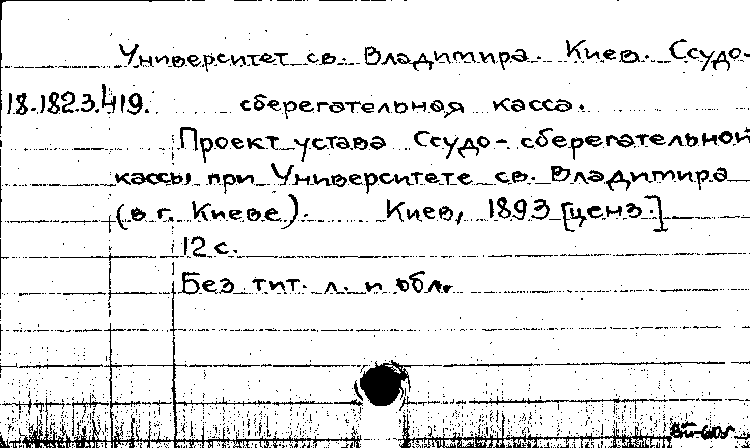 Университет св. Владимира. Киев. Ссудо-
18.182.3.419. сберегательная касса.
Проект устава Ссудо-сберегательной
кассы при Университете св. Владимира
(в г. Киеве). Киев, 1893 [ценз.]
12 с.
Без тит. л. и обл.